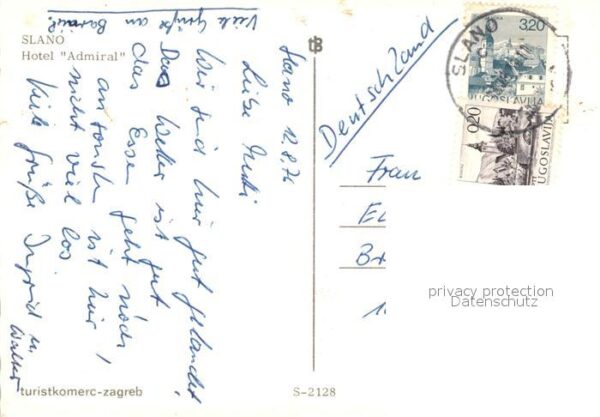 SLANO
Hotel "Admiral"
Viele Grüße an
Slano 12.8.76
Liebe
Wir sind hier gut gelandet
Das Wetter ist gut
das Essen geht noch,
ansonsten ist hier
nicht viel los.
Viele Grüße Ingrid u.
Walter
turistkomerc-zagreb
S-2128
Deutschland
Frau
E
B
1
SLANO
3,20
JUGOSLAVIJA
0,20
JUGOSLAVIJA
privacy protection
Datenschutz